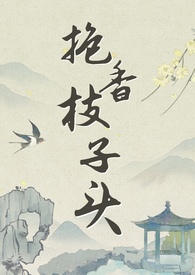 抱香枝子头